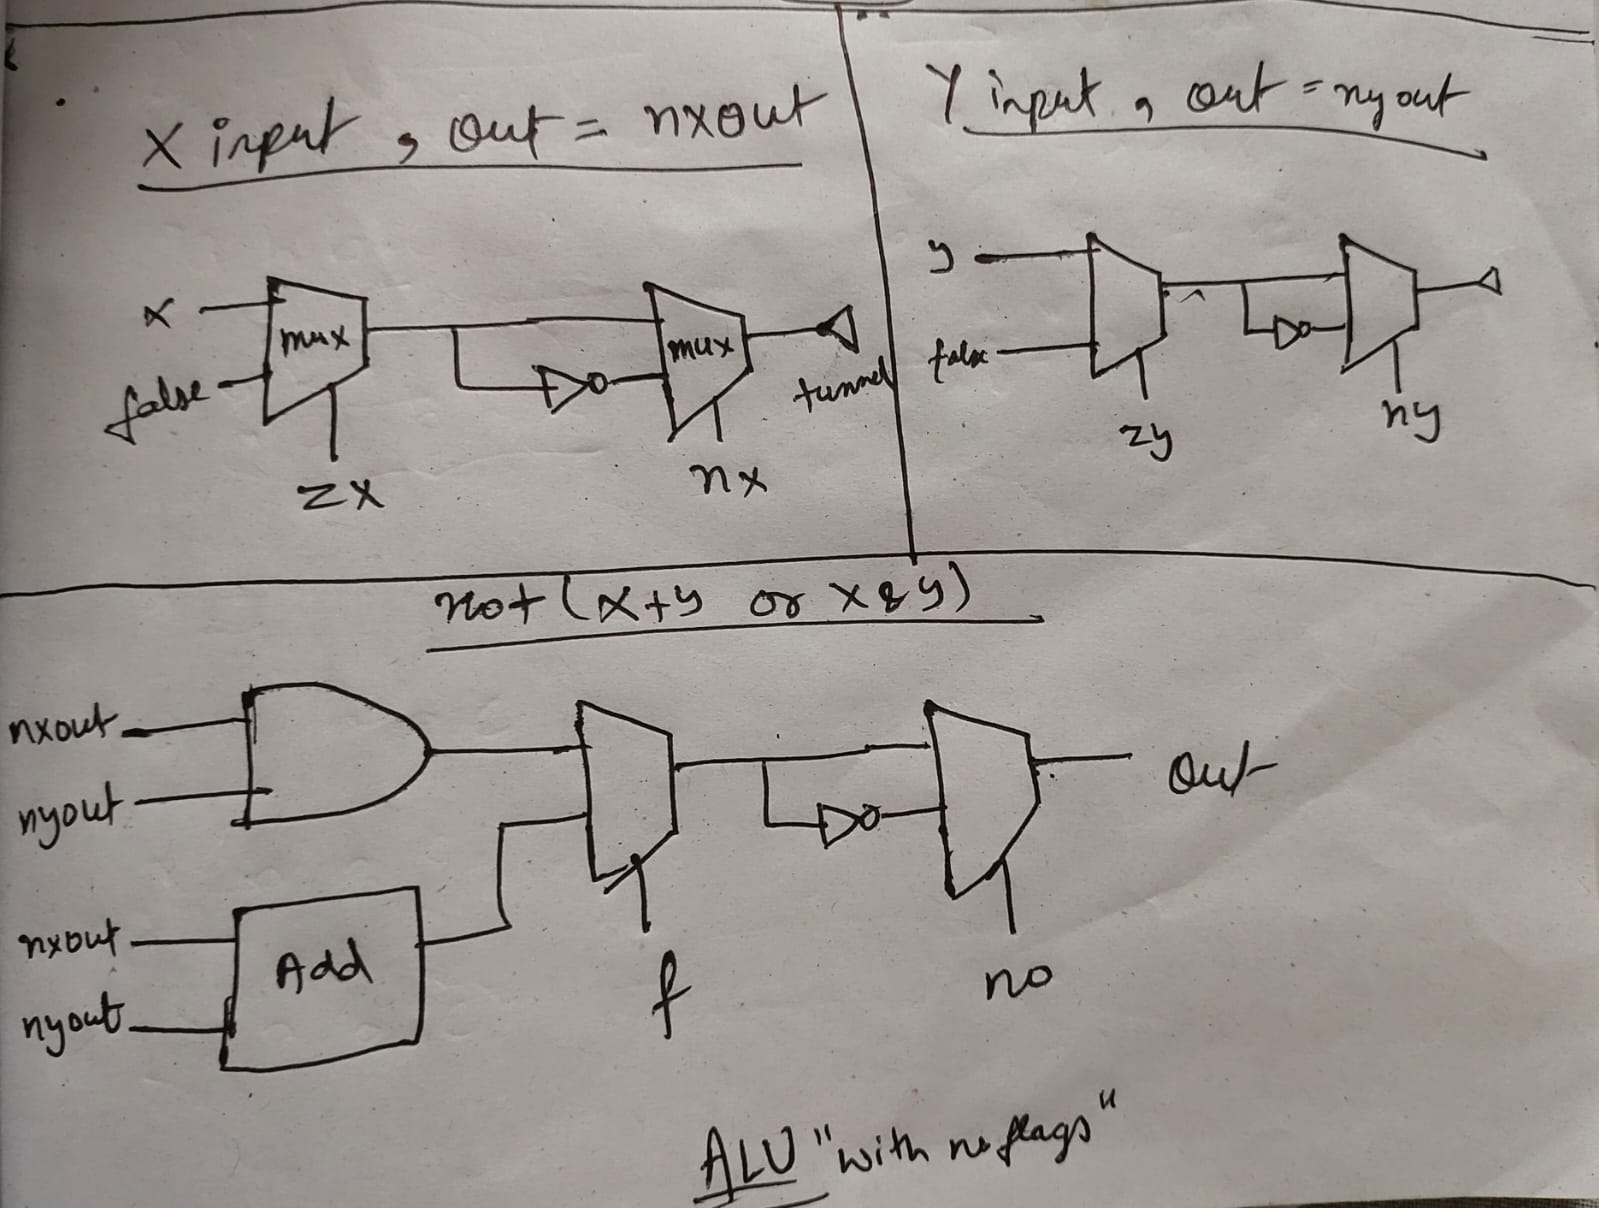 X input , out = nxout
x
mux
false
zx
mux
nx
tunnel
Y input , out = nyout
y
false
zy
ny
not (x+y or x&y)
nxout
nyout
nxout
nyout
Add
f
no
Out
ALU "with no flags"